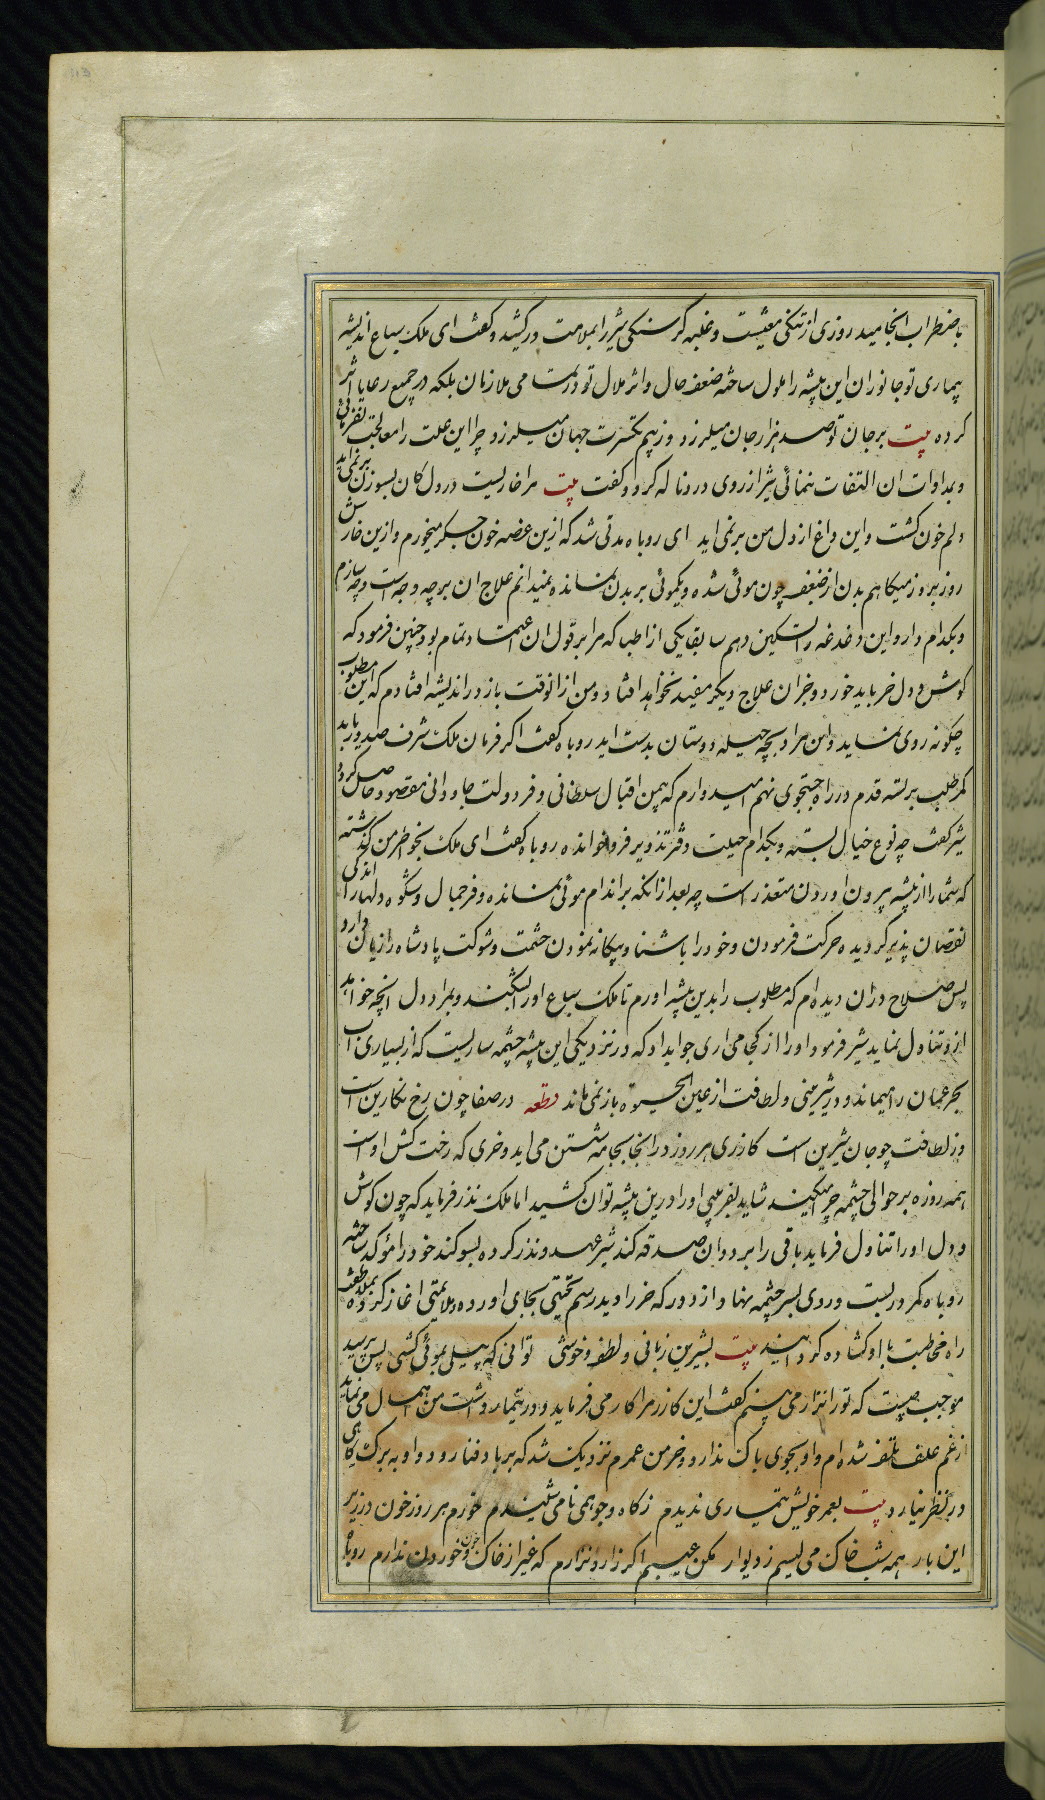 باضطراب انجامید روزی از تنکی معیشت و غلبه کرسنکی شیر را بملامت درکشید و کفت ای ملک سباع اندیشه
بیماری تو جانوران این بیشه را ملول ساخته ضعف حال و اثر ملال تو در تمامی ملازمان بلکه در جمیع رعایا اثر
کرده بیت بر جان تو صد هزار جان میلرزد وز بیم تکسرت جهان میلرزد چرا این علت را معالجت نفرمائی
و بداوات ان التفات ننمائی شیر از روی درد ناله کرد و کفت بیت مرا خاریست در دل کان بسوزن بر نمی اید
دلم خون کشت و این داغ از دل من بر نمی اید ای روباه مدتی شد که ازین غصه خون جکر میخورم و ازین خارش
روز بروز میکاهم بدن از ضعف چون موئی شده و یکموئی بر بدن نمانده نمیدانم علاج ان بر چه وجهست و چه سازم
و بکدام دارو این دغدغه را تسکین دهم سابقا یکی از اطبا که مرا بر قول ان اعتماد تمام بود چنین فرمود که
کوش و دل خر باید خورد و جز ان علاج دیکر مفید نخواهد افتاد و من از انوقت باز در اندیشه افتادم که این مطلوب
چکونه روی نماید و این مراد بچه حیله دوستان بدست اید روباه کفت اکر فرمان ملک شرف صدور یابد
کمر طلب بر بسته قدم در راه جستجوی نهم امیدوارم که بیمن اقبال سلطانی و فر دولت جاودانی مقصود حاصل کردد
شیر کفت چه نوع خیال بسته و بکدام حیلت دفتر تزویر فرو خوانده روباه کفت ای ملک بخواطر من کذشته
که شما را از بیشه بیرون اوردن متعذر است چه بعد از انکه بر اندام موئی نمانده و فر جمال و شکوه دلها را اندکی
نقصان پذیر کردیده حرکت فرمودن و خود را باشنا و بیکانه نمودن حشمت و شوکت پادشاه را زیان دارد
پس صلاح دران دیده ام که مطلوب را بدین بیشه اورم تا ملک سباع او را بشکند و بمراد دل انچه خواهد
ازو تناول نماید شیر فرمود او را از کجا می اری جواب داد که در نزدیکی این بیشه چشمه ساریست که از بسیاری اب
بحر عمان را میماند و در شیرینی و لطافت از عین الحیوة باز نمی ماند قطعه در صفا چون رخ نکارین است
وز لطافت چو جان شیرین است کازری هر روز در انجا بجامه شستن می اید و خری که رخت کش اوست
همه روزه بر حوالی چشمه چرا میکند شاید بفریبی او را درین بیشه توان کشید اما ملک نذر فرماید که چون کوش
و دل او را تناول فرماید باقی را بر ددان صدقه کند شیر عهد و نذر کرده بسوکند خود را مؤکد ساخته
روباه کمر در بست و روی بسر چشمه نهاد و از دور که خر را دید رسم تحیتی بجای اورده و ملایمتی اغاز کرده بملاطفت
راه مخاطبت با او کشاده کردانید بیت بشیرین زبانی و لطف و خوشی توانی که پیلی بموئی کشی پس پرسید
موجب چیست که ترا نزار می بینم کفت این کازر مرا کار می فرماید و در تیمار داشت من اهمال می نماید
از غم علف تلف شده ام و او بجوی باک ندارد و خرمن عمرم نزدیک شد که بر باد فنا رود و او به برک کاهی
در نظر نیارد بیت بعمر خویش تیماری ندیدم ز کاه و جو همی نامی شنیدم خورم هر روز خون در زیر
این بار همه شب خاک می لیسم ز دیوار مکن عیبم اکر زار و نزارم که غیر از خاک و خون خوردن ندارم روباه